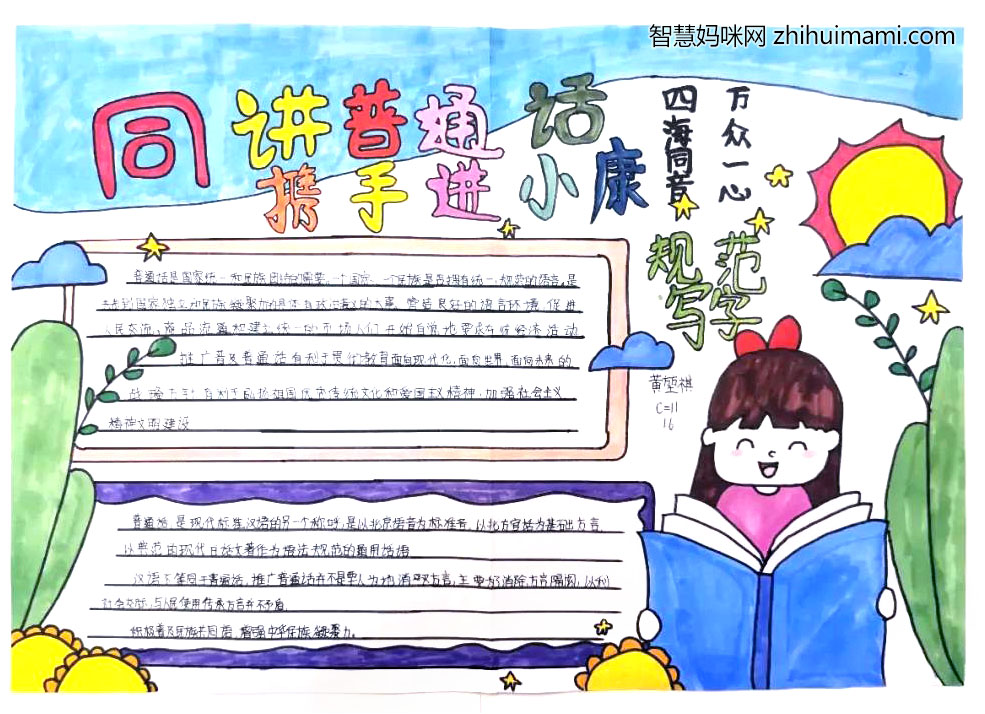 智慧妈咪网 zhihuimami.com
同讲普通话
携手进小康
万众一心
四海同音
规范
写字
黄堃祺
C=11
16
普通话是国家统一和民族团结的需要。一个国家、一个民族是否拥有统一、规范的语言,是
关系到国家独立和民族凝聚力的具体 的大事。营造良好的语言环境,促进
人民交流、商品流通和建 统一的市场人们开始自觉地要求 经济活动
推广普及普通话有利于更们教育面向现代化,面向世界,面向未来的
战略 有利于弘扬祖国优秀传统文化和爱国主义精神,加强社会主义
精神文明建设
普通话,是现代标准汉语的另一个称呼,是以北京语音为标准音,以北方官话为基础方言,
以典范的现代白话文著作为语法规范的通用语
汉语不等同于普通话,推广普通话并不是要人为地消灭方言,主要为消除方言隔阂,以利
社会交际,与人民使用传承方言并不矛盾
积极普及民族共同语,增强中华民族凝聚力。